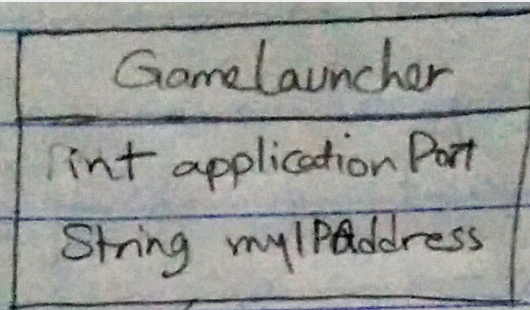 GameLauncher
int applicationPort
String myIPAddress